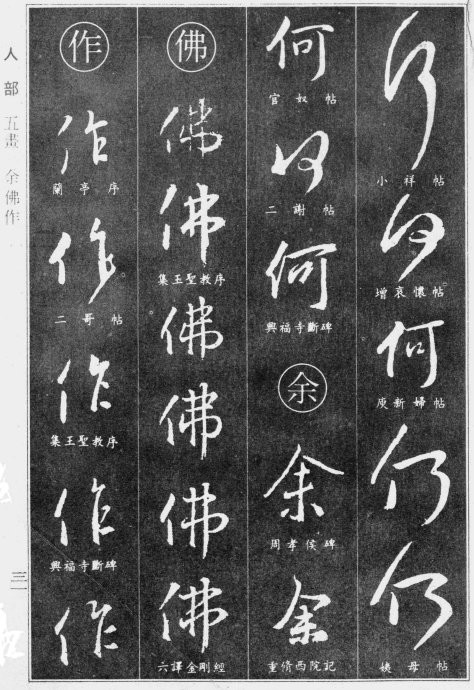 何
小祥帖
何
增哀懷帖
何
庾新婦帖
何
何
姨母帖
何
官奴帖
何
二謝帖
何
興福寺斷碑
余
余
周孝侯碑
余
重脩西院記
佛
佛
佛
集王聖教序
佛
佛
佛
佛
六譯金剛經
作
作
蘭亭序
作
二哥帖
作
集王聖教序
作
興福寺斷碑
作
人部 五畫 余佛作